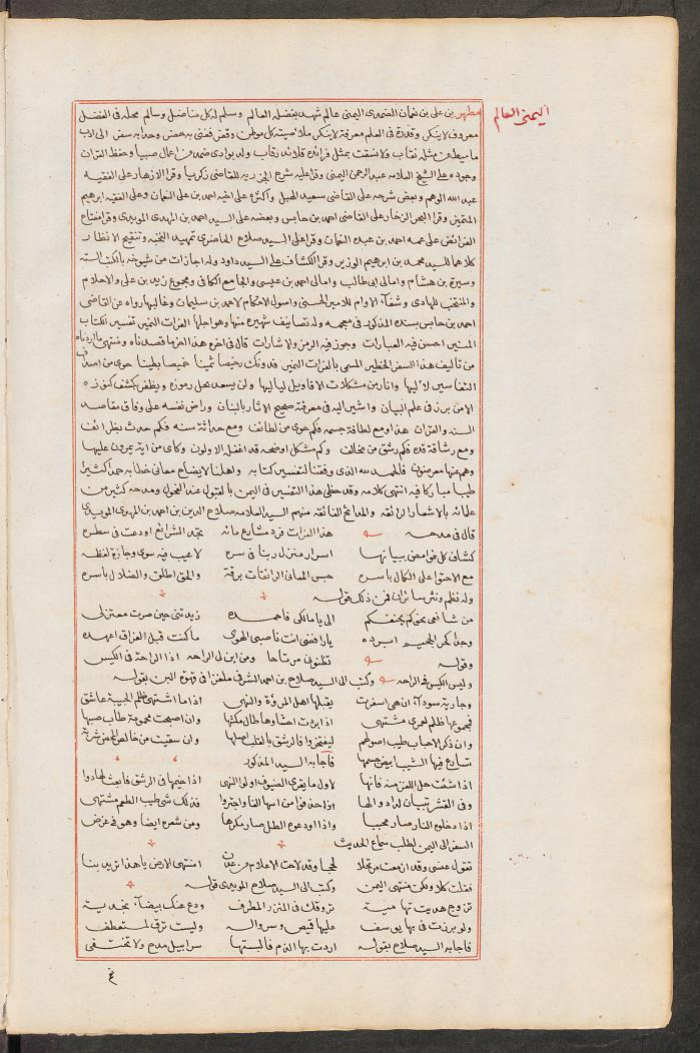 اليمني العالم
مطهر بن علي بن نعمان الضمدي اليمني عالم شهد بفضله العالم وسلم له كل مناضل وسالم محله في الفضل
معروف لا ينكر وقدره في العلم معرفة لا ينكر ملا صيته كل موطن وقص فغنى به حضر وحدا به سفر الى ادب
ما ميط عن مثله نقاب ولا نسقت بمثل فرائده قلائد رقاب ولد بوادي ضمد من اعمال صبيا وحفظ القران
وجوده على الشيخ العلامه عبد الرحمن اليمني وقرا عليه شرح الجزريه للقاضي زكريا وقرا الازهار على الفقيه
عبد الله الوهم وبعض شرحه على القاضي سعيد الهبل واكثره على اخيه احمد بن علي النعمان وعلى الفقيه ابراهيم
المتميز وقرا البحر الزخار على القاضي احمد بن حابس وبعضه على السيد احمد بن المهدي المويدي وقرا مفتاح
الفرائض على عمه احمد بن عبده النعمان وقرا على السيد صلاح الحاضري تمهيد النخبه وتنقيح الانظار
كلاهما للسيد محمد بن ابراهيم الوزير وقرا الكشاف على السيد داود وله اجازات من شيوخه بالكتب السته
وسيرة بن هشام وامالي ابي طالب وامالي احمد بن عيسى والجامع الكافي ومجموع زيد بن علي والاحلام
والمنتخب للهادي وشفآ الاوام للامير الحسني واصول الاحكام لاحمد بن سليمان وغالبها رواه عن القاضي
احمد بن حابس بسنده المذكور في معجمه وله تصانيف شهيره منها وهو اجلها الفرات النمير تفسير الكتاب
المنير احسن فيه العبارات وجوز فيه الرمز والاشارات قال في اخره هذا اخر ما قصدناه ومنتهى ما اردناه
من تاليف هذا السفر الخطير المسمى بالفرات النمير فدونك رخيصا ثمينا خميصا بطينا حوى من اصداف
التفاسير لاليها وانار من مشكلات الاقاويل لياليها ولن يسعد بحل رموزه ويظفر بكشف كنوزه
الا من برز في علم البيان واشير اليه في معرفة صحيح الاثار بالبنان وراض نفسه على وفاق مقاصد
السنه والقران هذا ومع لطافة جسمه فكم حوى من لطائف ومع حداثة سنه فكم حدث بظرائف
ومع رشاقة قده فكم رشق من مخالف وكم مشكل اوضحه قد اغفله الاولون وكاي من اية يمرون عليها
وهم عنها معرضون فالحمد لله الذي وفقنا لتفسير كتابه واهلنا لايضاح معاني خطابه حمدا كثيرا
طيبا مباركا فيه انتهى كلامه وقد حظي هذا التفسير في اليمن بالقبول عند الفحول ومدحه كثير من
علمائه بالاشعار الرائقه والمدائح الفائقه منهم السيد العلامه صلاح الدين بن احمد بن المهدي المويدي
قال في مدحه هذا الفرات فرد مشارع مائه تجد الشرائع اودعت في سطره
كشاف كل غوامض ببيانها اسرار منزل ربنا في سره لا عيب فيه سوى وجازة لفظه
مع الاحتوا على الكمال باسره حبس المعاني الرائقات برقة والحق اطلق والضلال باسره
وله نظم ونثر سائران فمن ذلك قوله
من شافعي نحوكم بحنفكم الى يا مالكي فاحمده زيدتني حين صرت معتزلي
وحدا كحر الجحيم ابرده يا رافضي انت ناصبي الهوى ما كنت قبل الفراق اعهده
وقوله تظنوني مرتاحا ومن اين لي الراحه اذا الراحة في الكيس
وليس الكيس في الراحه وكتب الى السيد صلاح بن احمد الشرفي ملغزا في قهوة البن بقوله
وجارية سودآء ان هي اسفرت يقبلها اهل المروة والنهى اذا ما اشتهى ظلم الحبيبة عاشق
فمجموعها ظلم لعمري مشتهى اذا بردت احشاوها طال مكثها وان اصبحت محمومة طاب صبها
وان ذكر الاحباب طيب اصولهم ليفتخروا فالرشق بالقلب اصلها وان سقيت من خالص المحض شربة
تسارع فيها الشيب ابيض جسمها فاجابه السيد المذكور
اذا شئت حل اللغز منه فانها لاول ما يقرى الضيوف اولو النهى اذا خيمها في الرشق فابعث لها دوا
وفي القشر تبيان لداء والها اذا حذفوا من اسمها الفا واجتروا فذلك شي طيب الطعم مشتهى
اذا دخلوه النار صار محببا واذا اودعوه الظل صار مكرها ومن شعره ايضا وهو في غرض
السفر الى اليمن لطلب سماع الحديث
تقول عنسي وقد ازمعت مرتحلا لحجا وقد لاحت الاعلام من عدن امنتهى الارض يا هذا تريد بنا
فقلت كلا ولكن منتهى اليمن وكتب الى السيد صلاح المويدي قوله
تزوج هديت تهامية تروقك في المئزر المطرف ودع عنك بيضآء نجدية
ولو برزت في بها يوسف عليها قميص وسرواله وليست ترق لمستعطف
فاجابه السيد صلاح بقوله اردت بها الذم فالبستها سرابيل مدح ولا تختفي